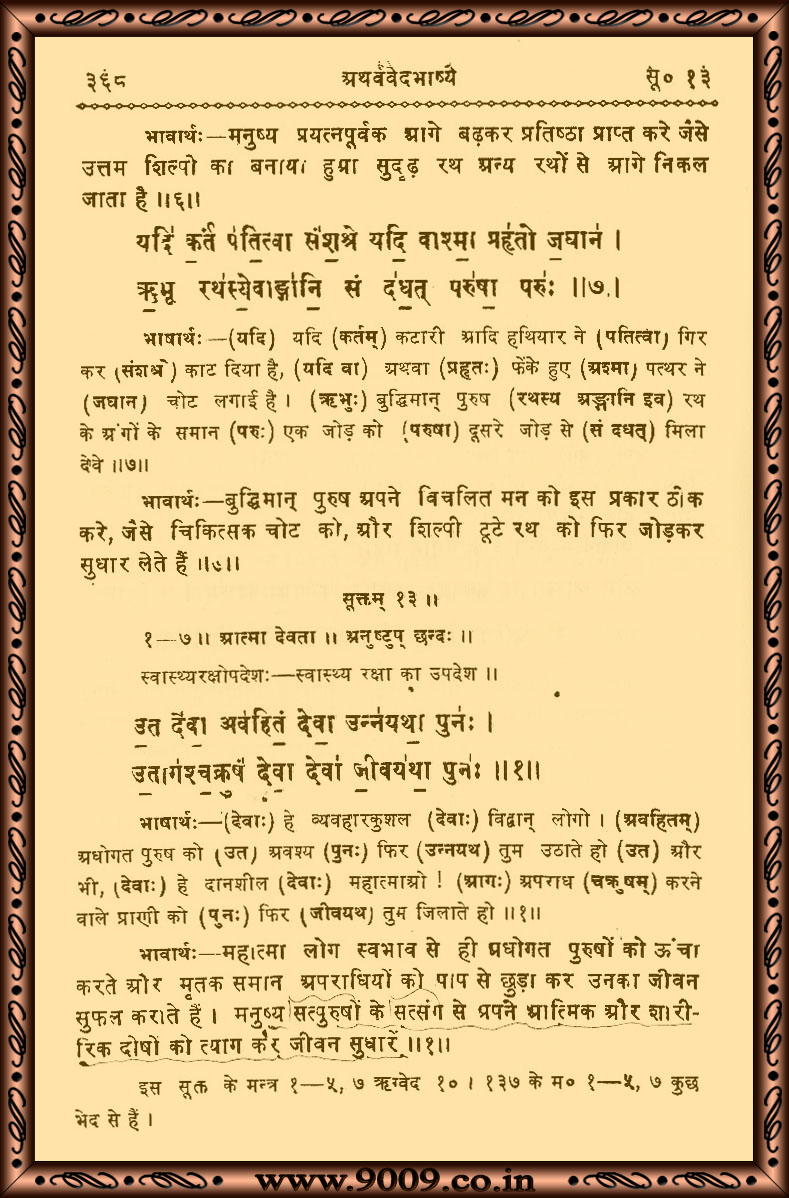 ३६८ अथर्ववेदभाष्ये सू० १३
भावार्थः—मनुष्य प्रयत्नपूर्वक आगे बढ़कर प्रतिष्ठा प्राप्त करे जैसे
उत्तम शिल्पी का बनाया हुआ सुदृढ़ रथ अन्य रथों से आगे निकल
जाता है ॥६॥
यदि॑ क॒र्तं प॑ति॒त्वा सं॑श॒श्रे यदि॒ वाश्मा॒ प्रहृ॑तो ज॒घान॑ ।
ऋ॒भू रथ॑स्ये॒वाङ्गा॑नि॒ सं द॑ध॒त् परु॑षा॒ परुः॑ ॥७॥
भाषार्थः—(यदि) यदि (कर्तम्) कटारी आदि हथियार ने (पतित्वा) गिर
कर (संशश्रे) काट दिया है, (यदि वा) अथवा (प्रहृतः) फेंके हुए (अश्मा) पत्थर ने
(जघान) चोट लगाई है । (ऋभुः) बुद्धिमान् पुरुष (रथस्य अङ्गानि इव) रथ
के अंगों के समान (परुः) एक जोड़ को (परुषा) दूसरे जोड़ से (सं दधत्) मिला
देवे ॥७॥
भावार्थः—बुद्धिमान् पुरुष अपने विचलित मन को इस प्रकार ठीक
करे, जैसे चिकित्सक चोट को, और शिल्पी टूटे रथ को फिर जोड़कर
सुधार लेते हैं ॥७॥
सूक्तम् १३ ॥
१—७ ॥ आत्मा देवता ॥ अनुष्टुप् छन्दः ॥
स्वास्थ्यरक्षोपदेशः—स्वास्थ्य रक्षा का उपदेश ॥
उ॒त दे॑वा॒ अव॑हितं॒ देवा॒ उन्न॑यथा॒ पुनः॑ ।
उ॒ताग॑श्च॒क्रुषं॑ देवा॒ देवा॑ जी॒वय॑था॒ पुनः॑ ॥१॥
भाषार्थः—(देवाः) हे व्यवहारकुशल (देवाः) विद्वान् लोगो । (अवहितम्)
अधोगत पुरुष को (उत) अवश्य (पुनः) फिर (उन्नयथ) तुम उठाते हो (उत) और
भी, (देवाः) हे दानशील (देवाः) महात्माओ ! (आगः) अपराध (चक्रुषम्) करने
वाले प्राणी को (पुनः) फिर (जीवयथ) तुम जिलाते हो ॥१॥
भावार्थः—महात्मा लोग स्वभाव से ही अधोगत पुरुषों को ऊंचा
करते और मृतक समान अपराधियों को पाप से छुड़ा कर उनका जीवन
सुफल कराते हैं । मनुष्य सत्पुरुषों के सत्संग से अपने आत्मिक और शारी-
रिक दोषों को त्याग कर जीवन सुधारें ॥१॥
इस सूक्त के मन्त्र १—५, ७ ऋग्वेद १० । १३७ के म० १—५, ७ कुछ
भेद से हैं ।
www.9009.co.in